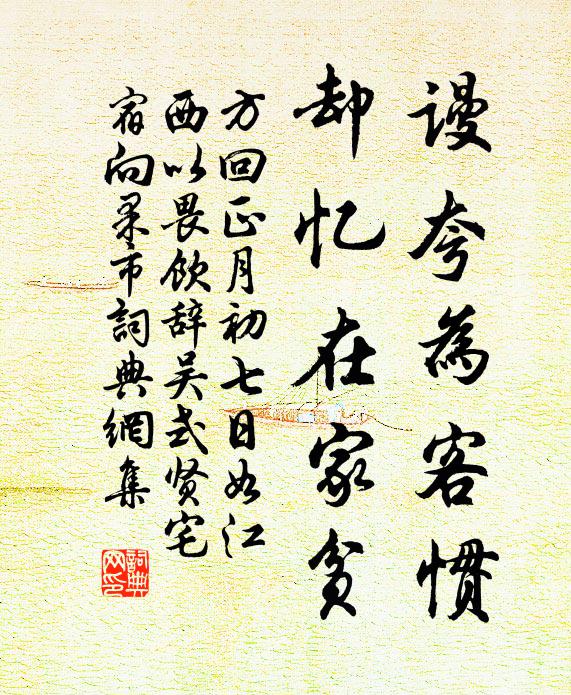 谩夸為客慣
却忆在家貧
方回正月初七日如江
西以畏飲辞吴式贤宅
宿向某市詞典網集
詞典
网印